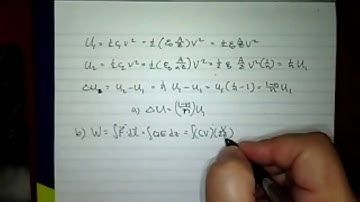 U₁ = ½C₁V² = ½(ε₀ A/z)V² = ½ε₀ A/z V²
U₂ = ½C₂V² = ½(ε₀ A/nz)V² = ½ε₀ A/z V²(1/n) = 1/n U₁
= U₂ - U₁ = 1/n U₁ - U₁ = U₁(1/n - 1) = (1-n)/n U₁
a) ΔU = (1-n/n)U₁
b) W = ∫F·dl = ∫QE dz = ∫(CV)(V/z)